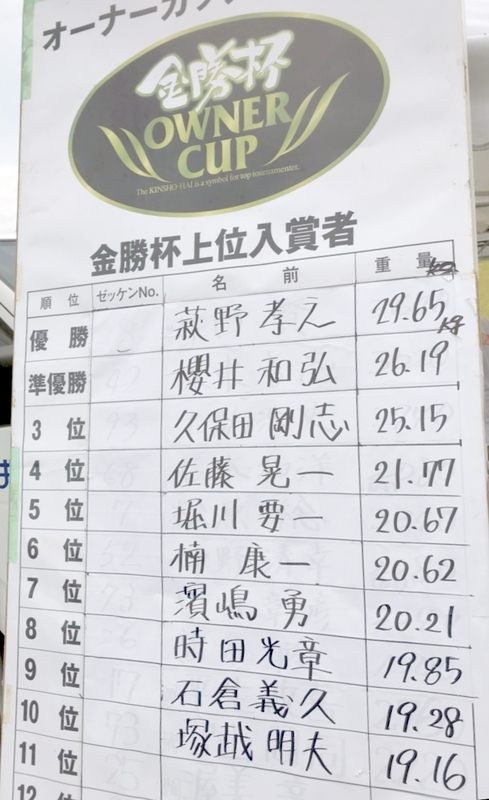 オーナーカッ
金勝杯
OWNER
CUP
The KINSHO-HAI is a symbol for top tournamenter.
金勝杯上位入賞者
順 位 ゼッケンNo. 名 前 重 量
優 勝 萩野孝之 29.65
準優勝 櫻井和弘 26.19
3 位 久保田剛志 25.15
4 位 佐藤晃一 21.77
5 位 堀川要一 20.67
6 位 楠康一 20.62
7 位 濱嶋勇 20.21
8 位 時田光章 19.85
9 位 石倉義久 19.28
10 位 塚越明夫 19.16
11 位
12